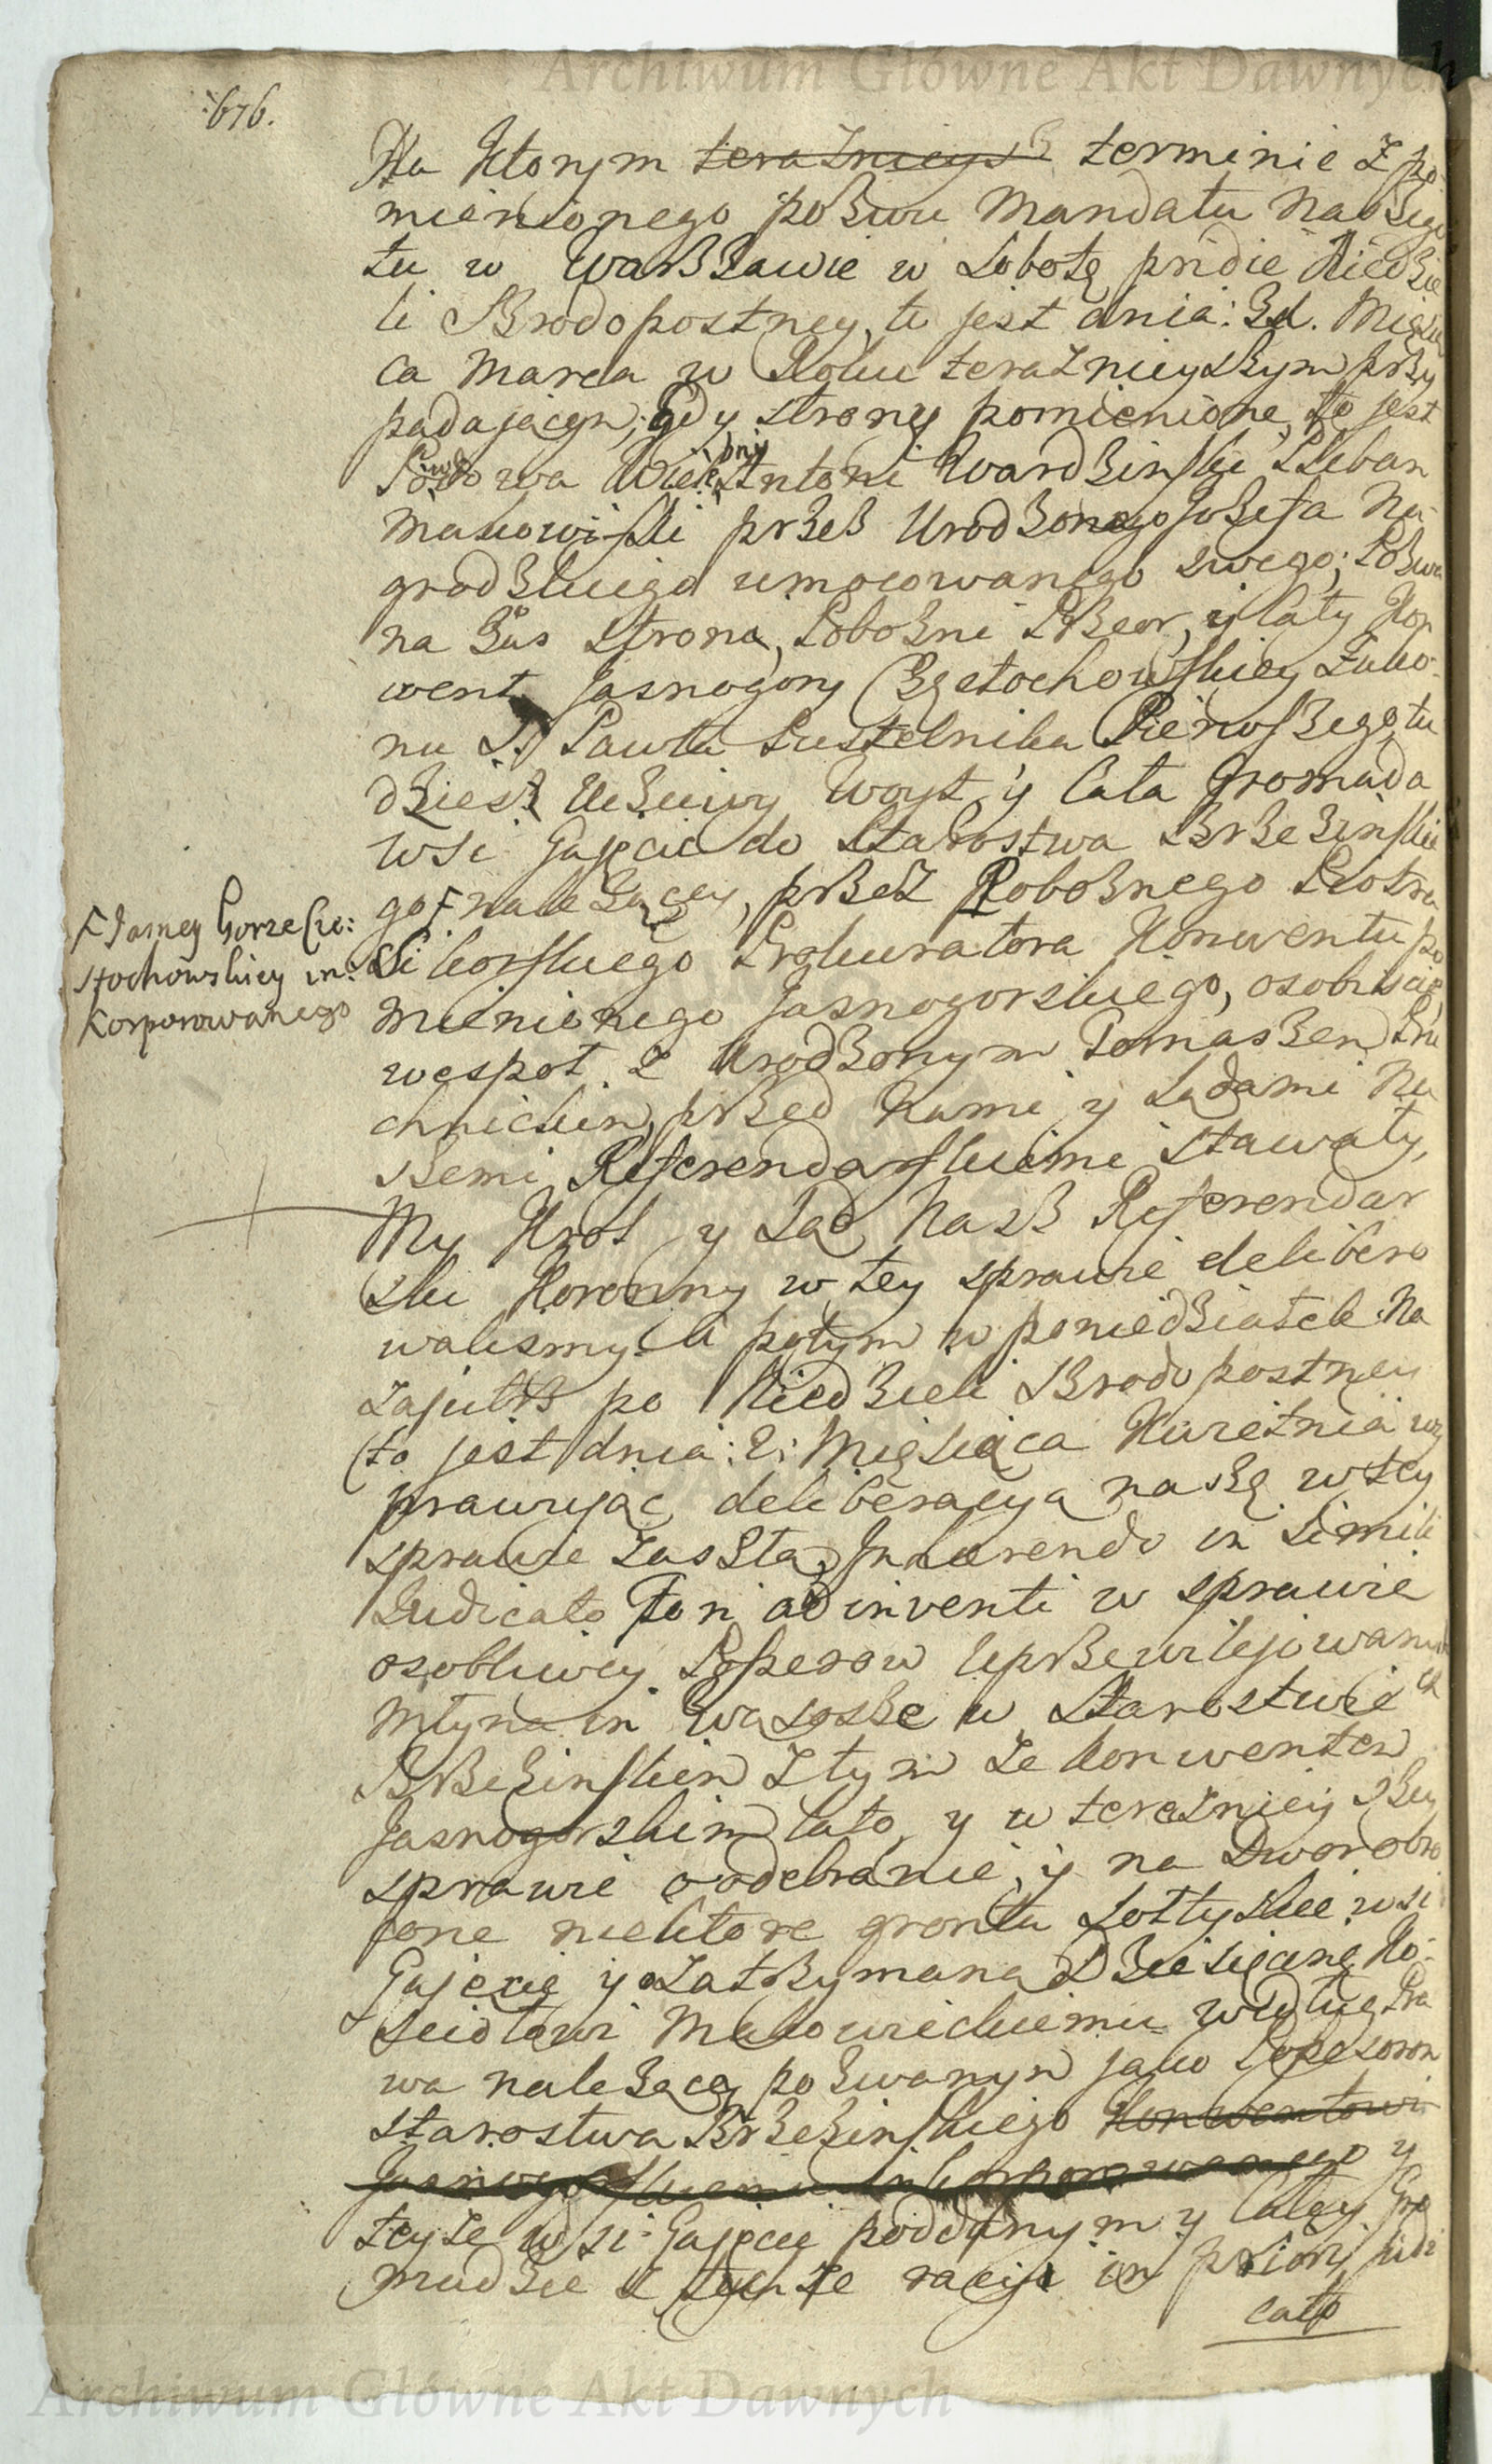 Archiwum Główne Akt Dawnych
676.
Na ktorym teraznieys terminie z po
mienionego pozwu Mandatu Naszego
tu w Warszawie w Sobotę pridie Niedzie
li Srodopostney, to jest dnia: 3d. Miesią
ca Marca w Roku teraznieyszym przy
padającym, gdy strony pomienione, to jest
Powodowa Wielebny Antoni Wardzinski Pleban
Makowiski przez Urodzonego Jozefa Na
grodzkiego umocowanego swego; Pozwa
na zas strona, Pobozni Przeor, y caly Kon
went Jasnogory Częstochowskiey Zako
nu S. Pawla Pustelnika Pierwszego, tu
dziesz Uczciwy Woyt, y cala Gromada
wsi Gajęcic do Starostwa Brzezinskie
go, F należącey, przez Poboznego Piotra
F Jasney Gorze Czę:
stochowskiey in:
korporowanego
Sikorskiego Prokuratora Konwentu po
mienionego Jasnogorskiego, osobiscie,
wespoł z Urodzonym Tomaszem
chnickim, przed Nami, y Sądami Na
szemi Referendarskiemi stawały,
My Krol y Sąd Nasz Referendar
ski Koronny w tey sprawie delibero
walismy. A potym w poniedziałek Na
zajutrz po Niedzieli Srodopostney
to jest dnia: 2: Miesiąca Kwietnia wy
prawując deliberacyą naszę w tey
sprawie zaszłą, Inhærendo in simili
Judicato Fori adinventi w sprawie
osobliwey Possesorow uprzewilejowanych
Młyna in Wąsosze w Starostwie
Brzezinskiem z tym ze Konwentem
Jasnogorskim lato, y w teraznieyszey
sprawie o odebranie, y na Dwor obro
cone niektore gronta Sołtyskie wsi
Gajęcic y zatrzymaną Dziesięcinę Ko:
sciołowi Makowieckiemu według Pra
wa należącą pozwanym jako Possesorom
starostwa Brzezinskiego Konwentowi
Jasnogorskiemu inkorporowanego y
teyze wsi Gajęcic poddanym y całey Gro
madzie z tychze racyi in priori judi
cato
Archiwum Główne Akt Dawnych